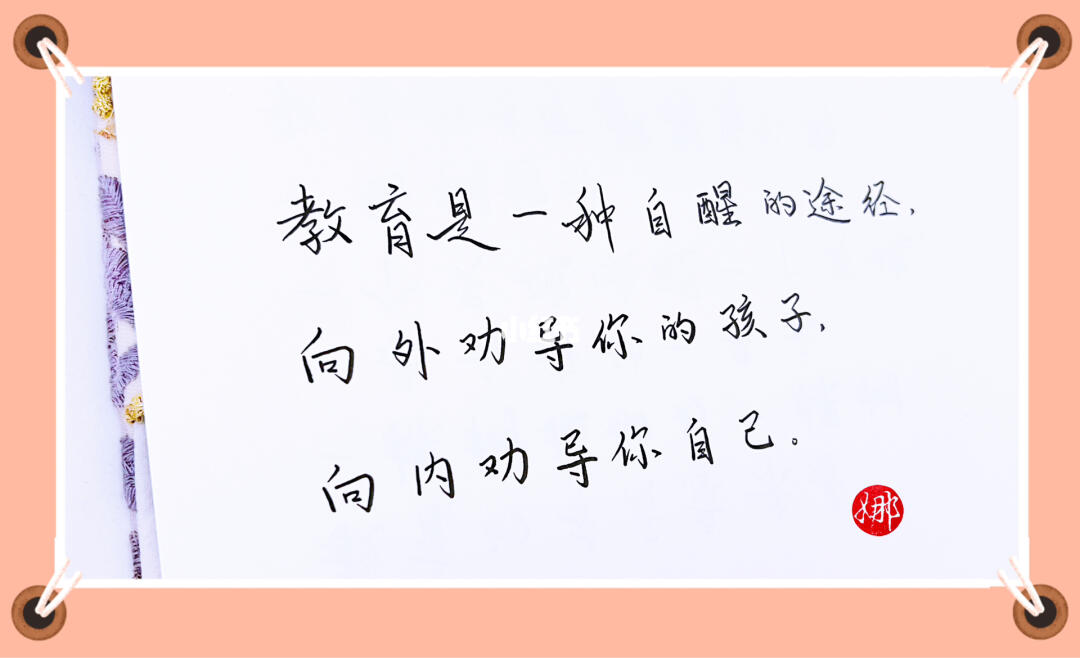 教育是一种自醒的途径，
向外劝导你的孩子，
向内劝导你自己。
小红书
娜